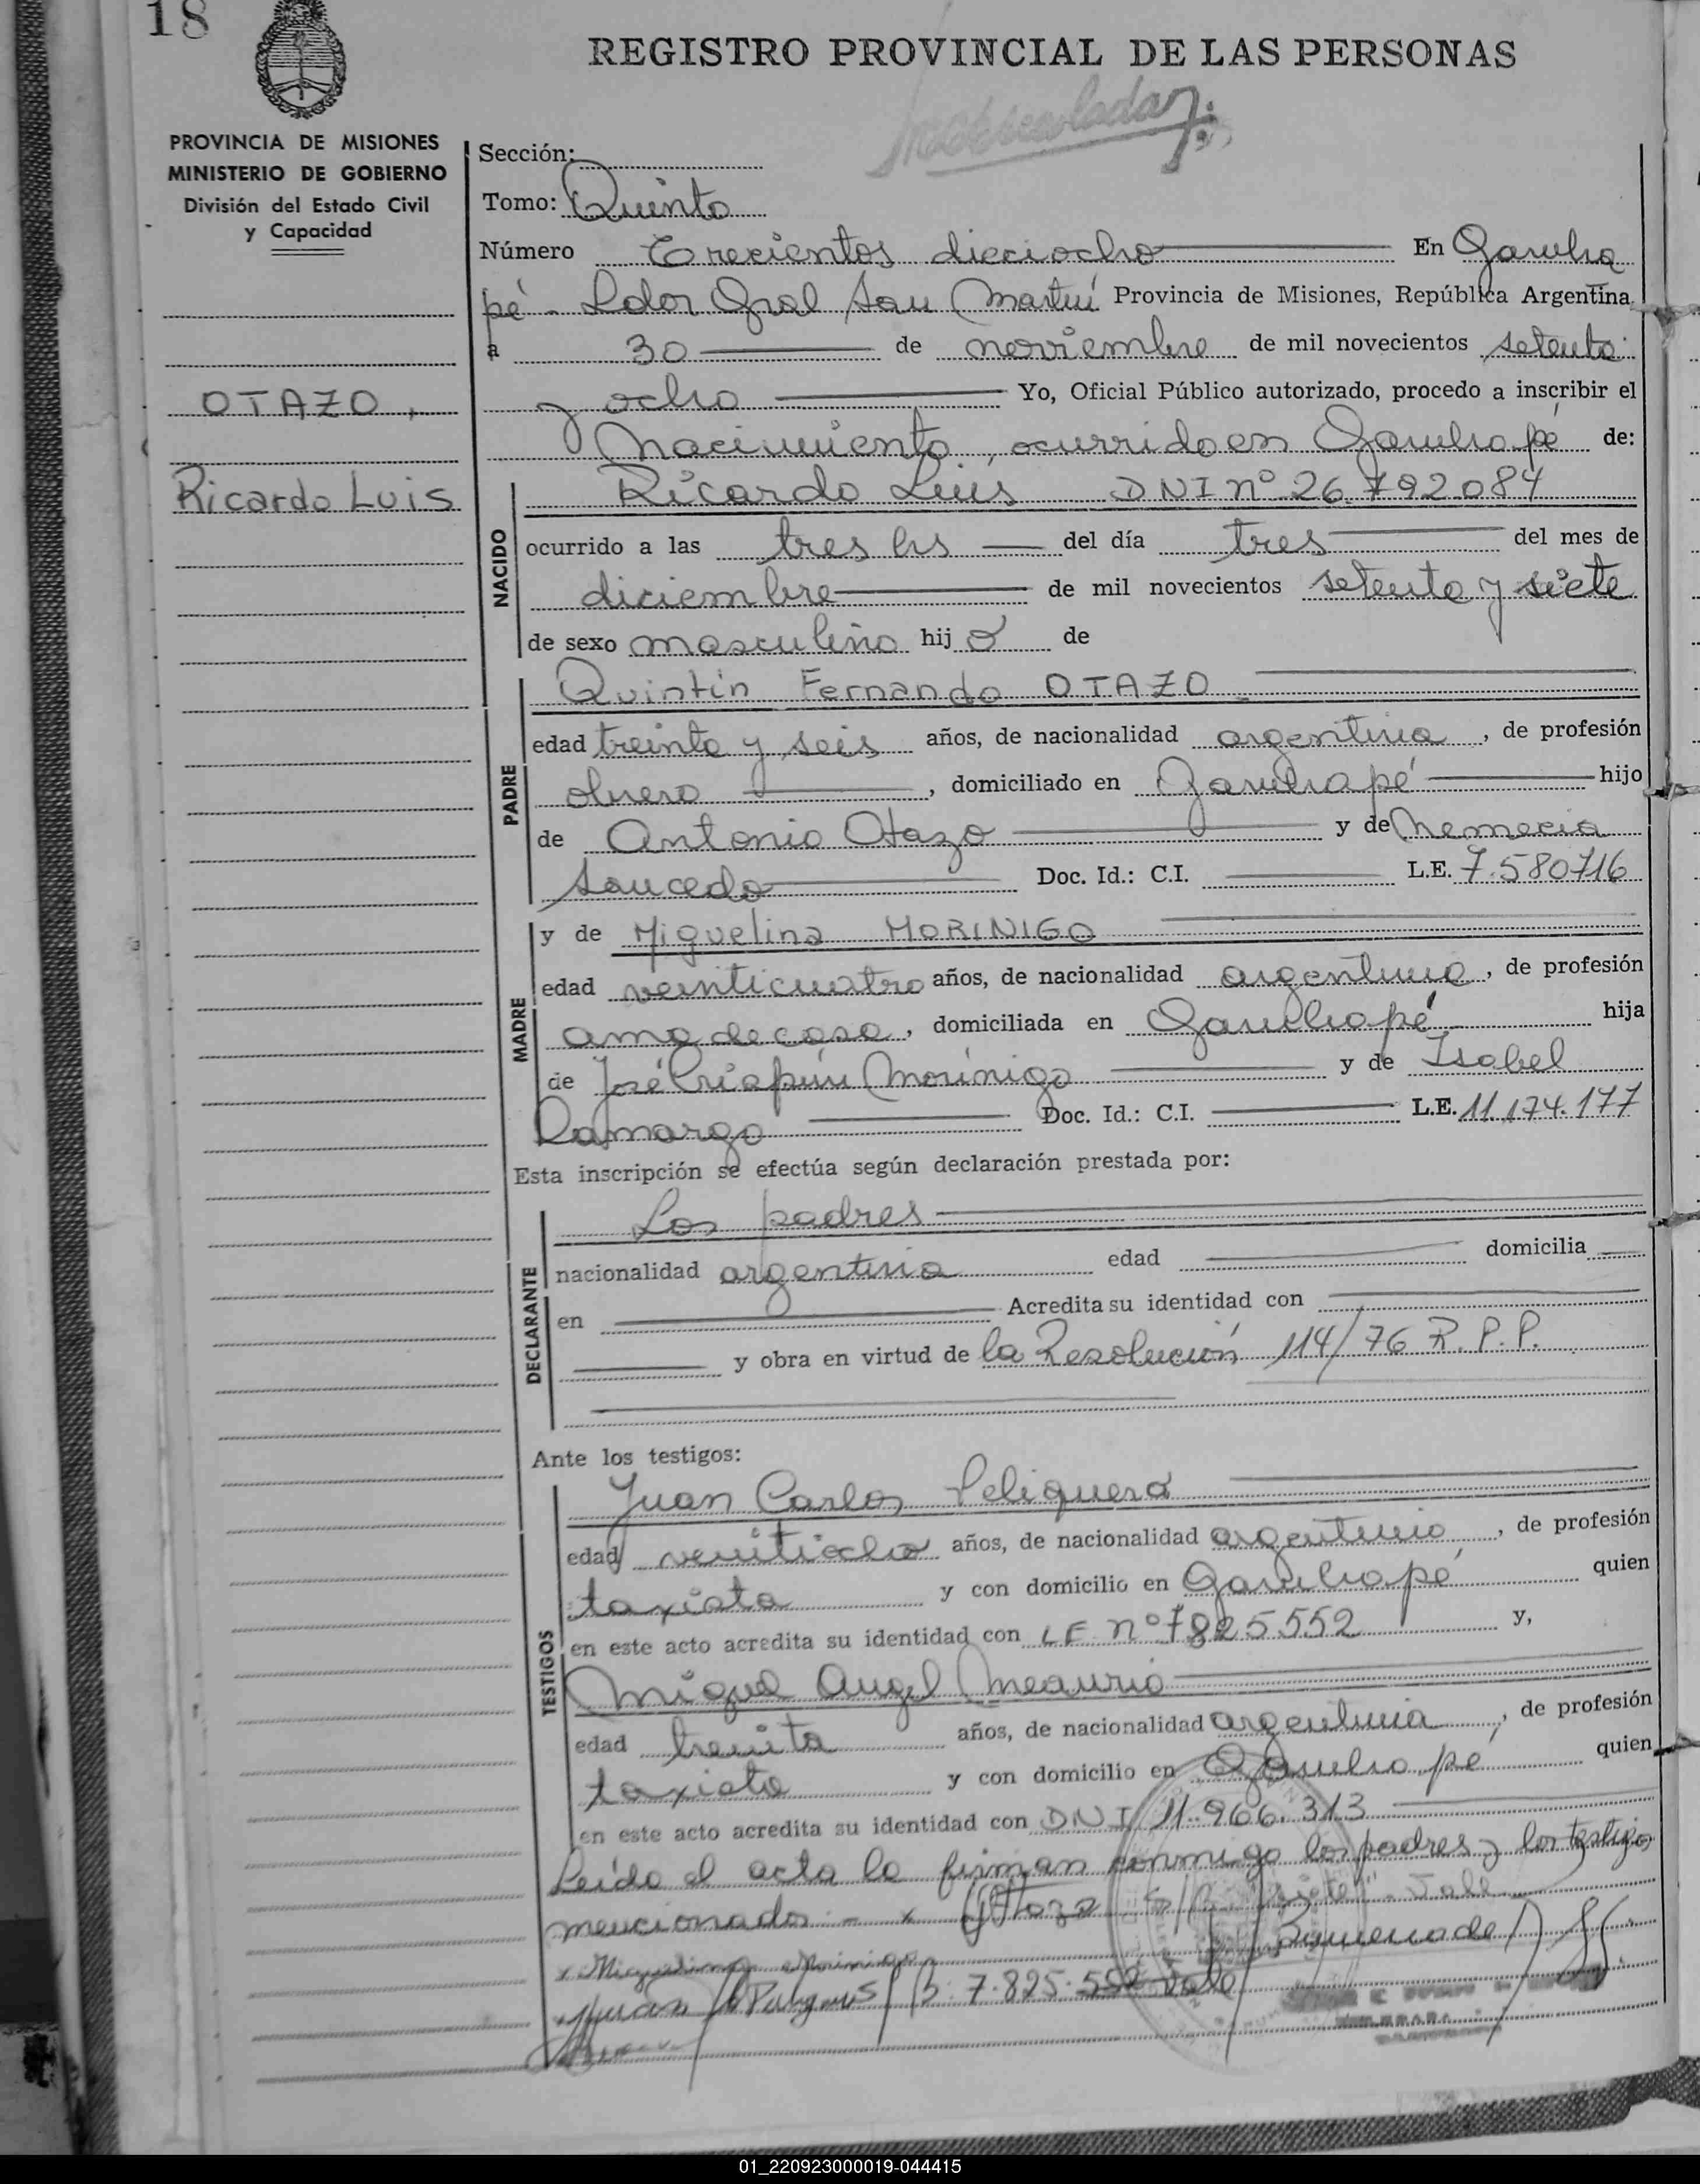 18
REGISTRO PROVINCIAL DE LAS PERSONAS
PROVINCIA DE MISIONES
MINISTERIO DE GOBIERNO
División del Estado Civil
y Capacidad
OTAZO,
Ricardo Luis
Sección:
Tomo: Quinto
Número Trecientos dieciocho En Garuha
pé - Ldor Gral San Martín Provincia de Misiones, República Argentina
a 30 de noviembre de mil novecientos setenta
y ocho Yo, Oficial Público autorizado, procedo a inscribir el
Nacimiento, ocurrido en Garuhapé de:
NACIDO
Ricardo Luis DNI nº 26.792.084
ocurrido a las tres hs del día tres del mes de
diciembre de mil novecientos setenta y siete
de sexo masculino hij o de
PADRE
Quintín Fernando OTAZO
edad treinta y seis años, de nacionalidad argentina, de profesión
obrero, domiciliado en Garuhapé hijo
de Antonio Otazo y de Nemecia
Saucedo Doc. Id.: C.I. L.E. 7.580716
MADRE
y de Miguelina MORINIGO
edad veinticuatro años, de nacionalidad argentina, de profesión
ama de casa, domiciliada en Garuhapé, hija
de José Crispín Morínigo y de Isabel
Ramargo Doc. Id.: C.I. L.E. 11.174.177
Esta inscripción se efectúa según declaración prestada por:
DECLARANTE
Los padres
nacionalidad argentina edad domicilia
en Acredita su identidad con
y obra en virtud de la Resolución 114/76 R.P.P.
Ante los testigos:
TESTIGOS
Juan Carlos
edad veintiocho años, de nacionalidad argentino, de profesión
taxista y con domicilio en Garuhapé quien
en este acto acredita su identidad con LE nº 7825552 y,
Miguel Angel Meaurio
edad treinta años, de nacionalidad argentina, de profesión
taxista y con domicilio en Garuhapé quien
en este acto acredita su identidad con DNI 11.966.313
Leído el acta la firman conmigo los padres y los testigos
mencionados - x Otazo Vale
x Miguelina Morinigo
x Juan 7.825.552 Vale
01_220923000019-044415